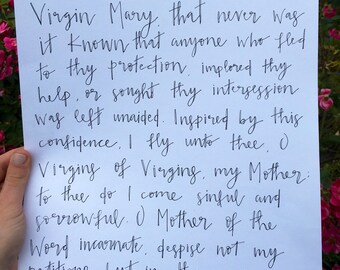 Virgin Mary, that never was
it known that anyone who fled
to thy protection, implored thy
help, or sought thy intersession
was left unaided. Inspired by this
confidence, I fly unto thee, O
Virgins of Virgins, my Mother;
to thee do I come sinful and
sorrowful. O Mother of the
Word incarnate, despise not my